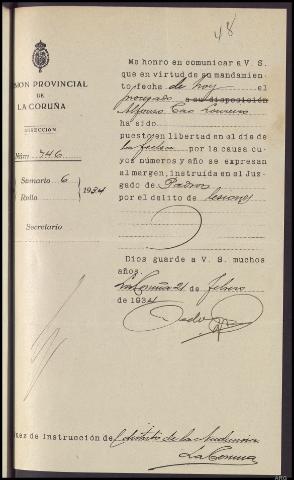 48
SION PROVINCIAL
DE
LA CORUÑA
DIRECCION
Núm. 346
Sumario 6
Rollo
1934
Secretario
Me honro en comunicar a V. S.
que en virtud de su mandamien-
to,fecha de hoy el
procesado a su disposición
Alfonso Cao
ha sido
puesto en libertad en el día de
la fecha por la causa cu-
yos números y año se expresan
al margen, instruida en el Juz-
gado de Padron
por el delito de lesiones
Dios guarde a V. S. muchos
años.
La Coruña 21 de febrero
de 1934
ez de instrucción del distrito de la Audiencia
La Coruña